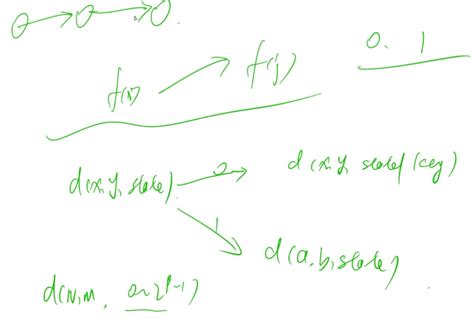 0. 1
f(i) → f(j)
d(x,y,state) 0→ d(x,y, state|(key)
1
d(a,b,state)
d(N,M, 0~2^p-1)